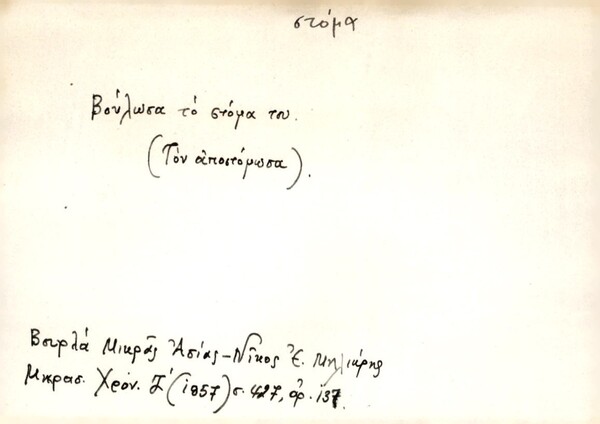 στόμα
Βούλωσα τό στόμα του.
(Τόν ἀποστόμωσα).
Βουρλά Μικρᾶς Ἀσίας - Νῖκος Ἐ. Μηλιώρης
Μικρασ. Χρόν. Ζ' (1957) σ. 427, ἀρ. 137.